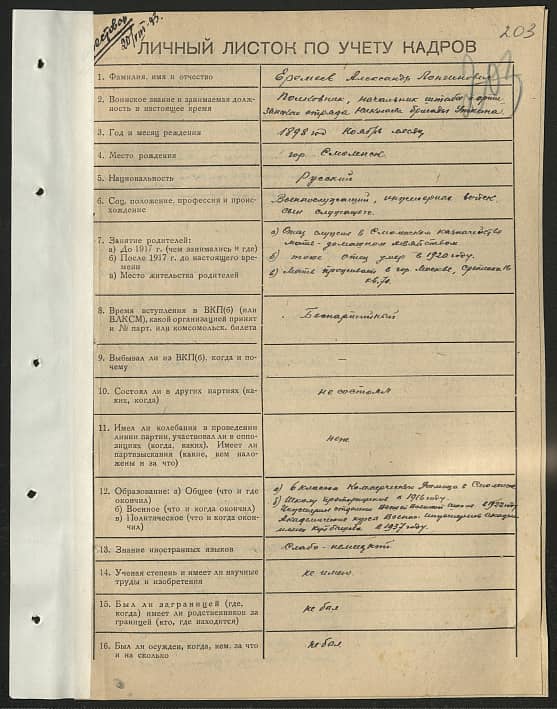 203
20/VIII-43.
ЛИЧНЫЙ ЛИСТОК ПО УЧЕТУ КАДРОВ
1. Фамилия, имя и отчество
Еремеев Александр
2. Воинское звание и занимаемая долж-
ность в настоящее время
Полковник, начальник штаба парти-
занского отряда
бригады
3. Год и месяц рождения
1898 год Ноябрь месяц
4. Место рождения
гор. Смоленск
5. Национальность
Русский
6. Соц. положение, профессия и проис-
хождение
Военнослужащий, инженерных войск
сын служащего.
7. Занятие родителей:
а) До 1917 г. (чем занимались и где)
б) После 1917 г. до настоящего вре-
мени
в) Место жительства родителей
а) Отец служил в Смоленском казначействе
мать - домашним хозяйством
б) тоже отец умер в 1920 году.
в) Мать проживает в гор. Москве,
кв.
8. Время вступления в ВКП(б) (или
ВЛКСМ), какой организацией принят
и № парт. или комсомольск. билета
Беспартийный
9. Выбывал ли из ВКП(б), когда и по-
чему
—
10. Состоял ли в других партиях (ка-
ких, когда)
не состоял
11. Имел ли колебания в проведении
линии партии, участвовал ли в оппо-
зициях (когда, каких). Имеет ли
партвзыскания (какие, кем нало-
жены и за что)
нет
12. Образование: а) Общее (что и где
окончил)
б) Военное (что и когда окончил)
в) Политическое (что и когда окон-
чил)
а) 6 классов Коммерческого училища в Смоленске
б) Школу прапорщиков в 1916 году.
отделение школы в 1932 году
Академические курсы Военно-инженерной академии
Куйбышева в 1937 году.
13. Знание иностранных языков
Слабо - немецкий
14. Ученая степень и имеет ли научные
труды и изобретения
не имею
15. Был ли заграницей (где,
когда) имеет ли родственников за
границей (кто, где находится)
не был
16. Был ли осужден, когда, кем, за что
и на сколько
не был